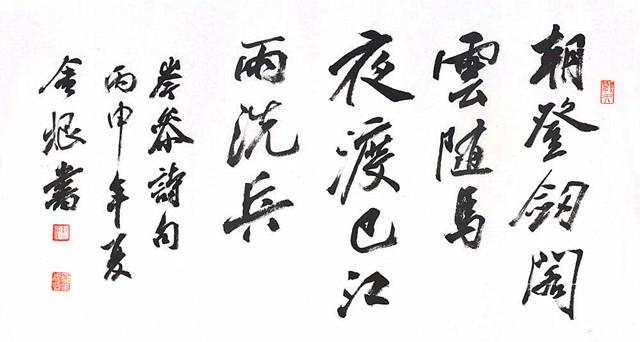 朝登劒閣
雲随馬
夜渡巴江
雨洗兵
岑參詩句
丙申年夏
書